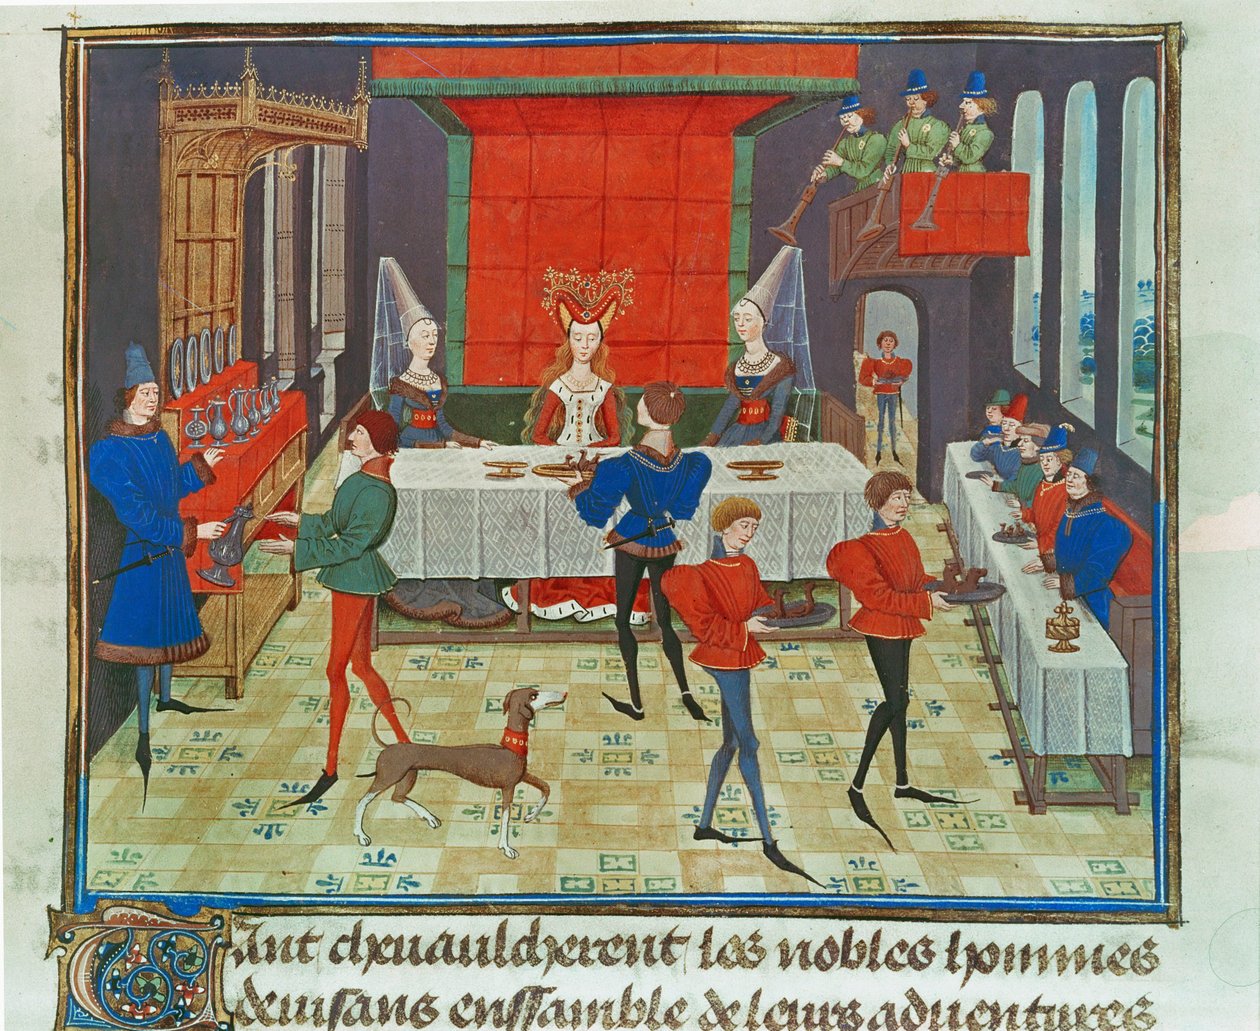 Tant cheuaulcherent les nobles hommes
deuisans enssamble de leurs aduentures